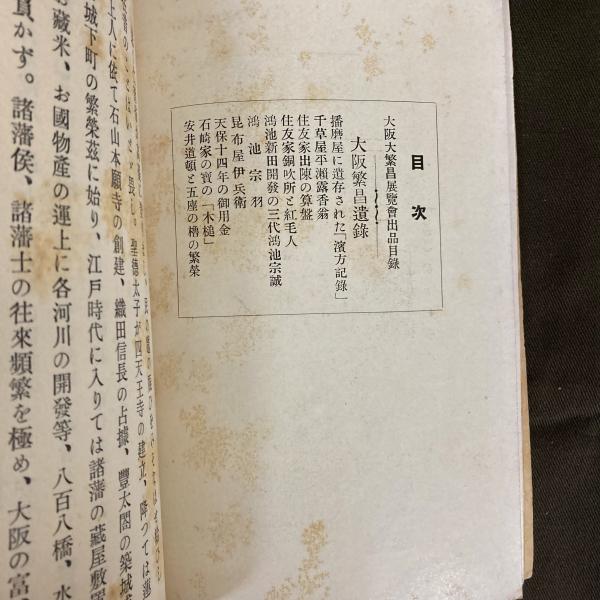 目次
大阪大繁昌展覽會出品目錄
大阪繁昌遺錄
播磨屋に遺存された「濱方記錄」
千草屋平瀨露香翁
住友家出陳の算盤
住友家銅吹所と紅毛人
鴻池新田開發の三代鴻池宗誠
鴻池宗羽
昆布屋伊兵衛
天保十四年の御用金
石崎家の寶の「木槌」
安井道頓と五座の櫓の繁榮
聖德太子が四天王寺の建立、降つては蓮
上人に依て石山本願寺の創建、織田信長の占據、豐太閤の築城
城下町の繁榮茲に始り、江戸時代に入りては諸藩の藏屋敷
お藏米、お國物產の運上に各河川の開發等、八百八橋、水
負かず。諸藩侯、諸藩士の往來頻繁を極め、大阪の富